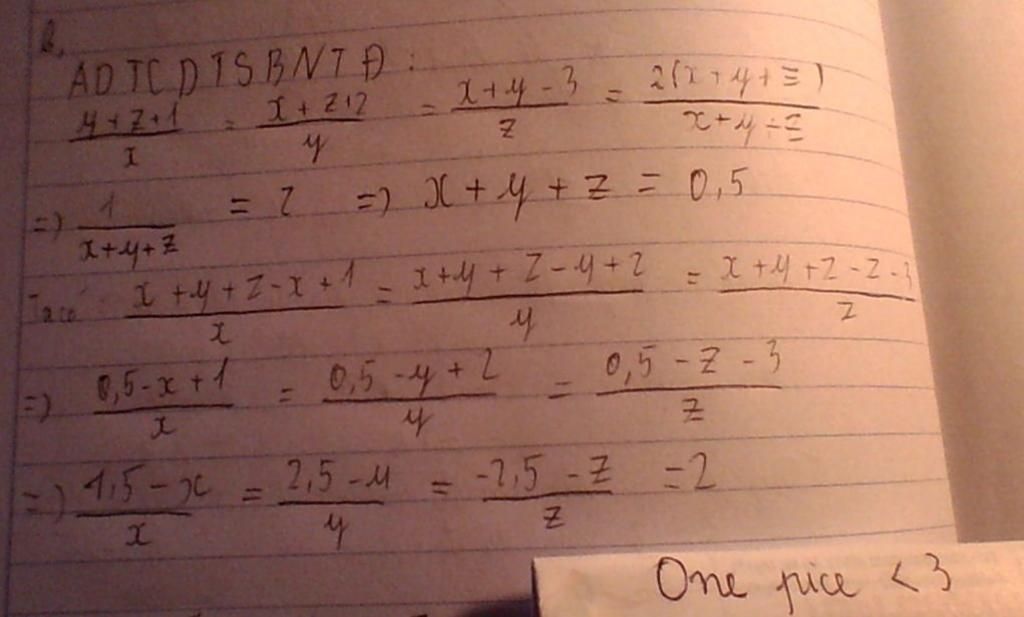 b,
ADTCDTSBNTĐ :
\frac{y+z+1}{x} = \frac{x+z+2}{y} = \frac{x+y-3}{z} = \frac{2(x+y+z)}{x+y+z}
=) \frac{1}{x+y+z} = 2 =) x+y+z = 0,5
Ta có \frac{x+y+z-x+1}{x} = \frac{x+y+z-y+2}{y} = \frac{x+y+z-z-3}{z}
=) \frac{0,5-x+1}{x} = \frac{0,5-y+2}{y} = \frac{0,5-z-3}{z}
=) \frac{1,5-x}{x} = \frac{2,5-y}{y} = \frac{-2,5-z}{z} =2
One pice <3